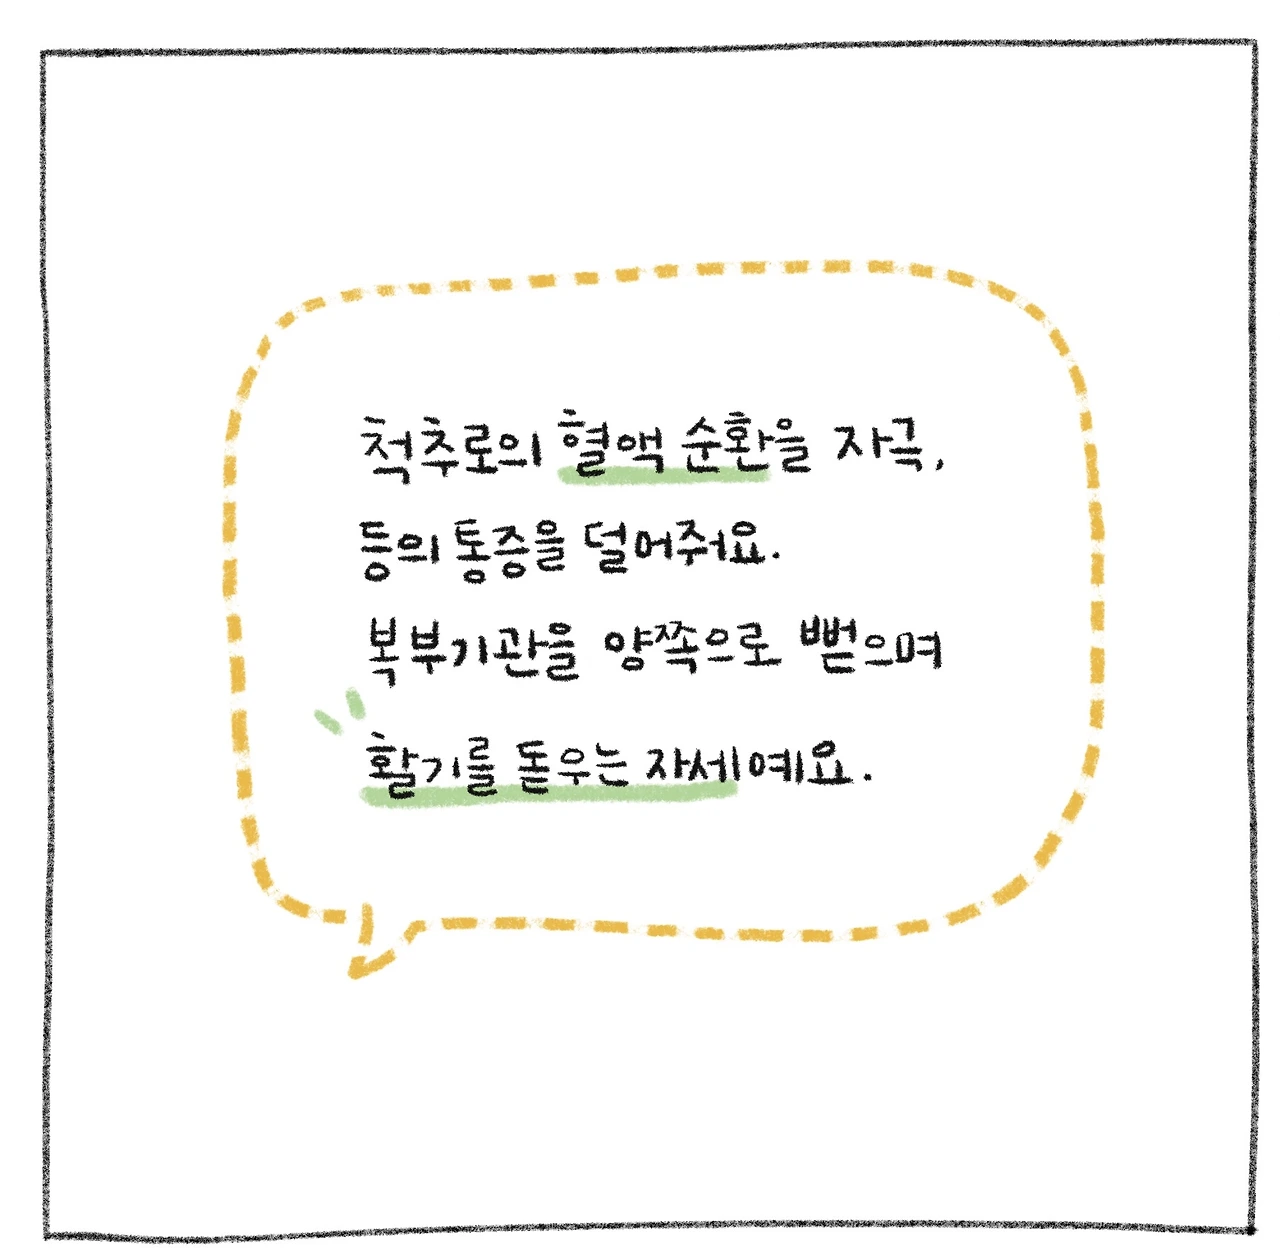 척추로의 혈액 순환을 자극,
등의 통증을 덜어줘요.
복부기관을 양쪽으로 뻗으며
활기를 돋우는 자세예요.